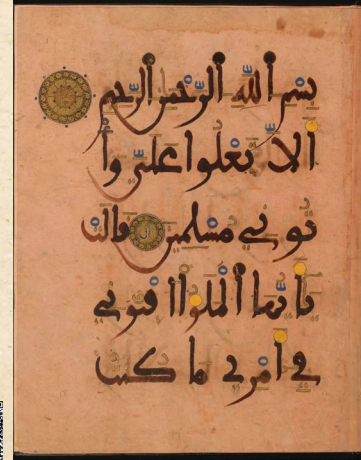 بسم الله الرحمن الرحيم
ألا تعلوا علي وأ
توني مسلمين قالت
يا أيها الملؤا أفتوني
في أمري ما كنت